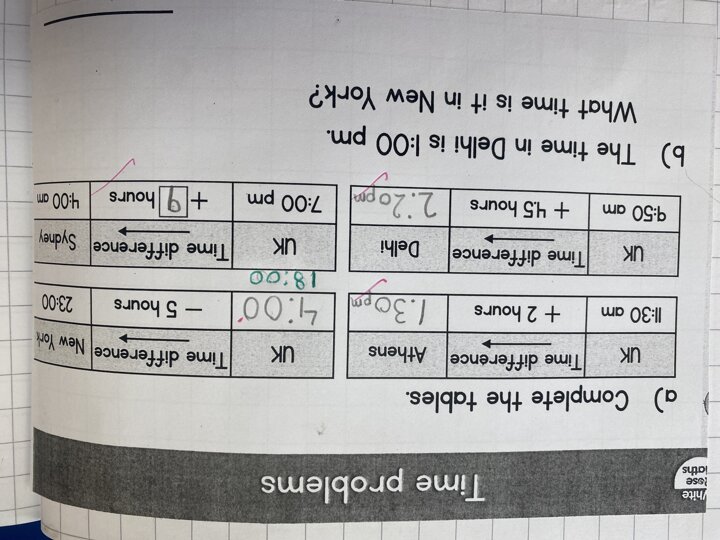 hite
ose
aths
Time problems
a) Complete the tables.
UK Time difference Athens
11:30 am + 2 hours 1:30pm
UK Time difference New York
4:00 − 5 hours 23:00
18:00
UK Time difference Delhi
9:50 am + 4.5 hours 2:20pm
UK Time difference Sydney
7:00 pm + 9 hours 4:00 am
b) The time in Delhi is 1:00 pm.
What time is it in New York?